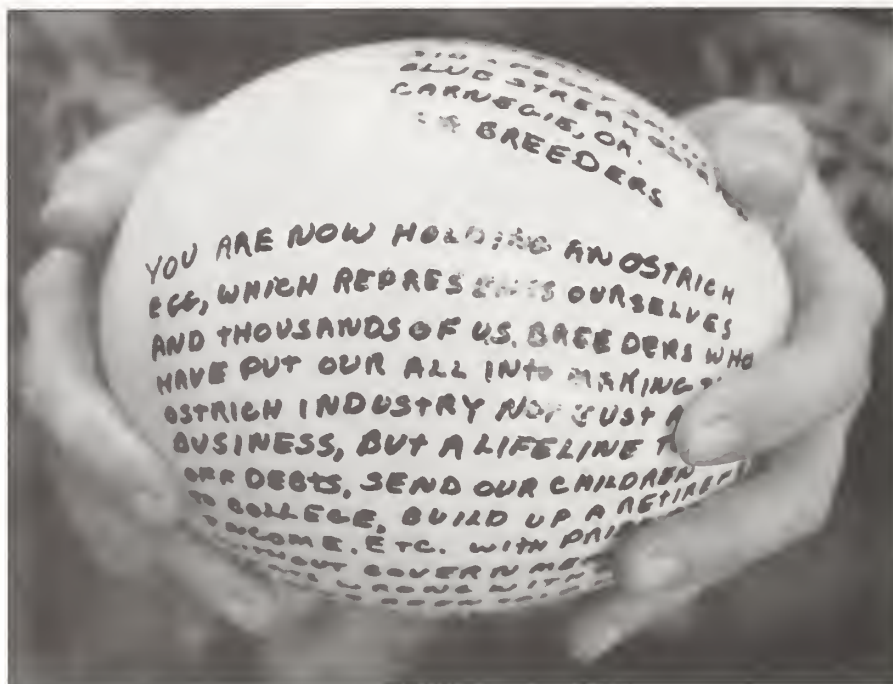 BLUE STREAK
CARNEGIE, OK.
BREEDERS
YOU ARE NOW HOLDING AN OSTRICH
EGG, WHICH REPRESENTS OURSELVES
AND THOUSANDS OF US. BREEDERS WHO
HAVE PUT OUR ALL INTO MAKING
OSTRICH INDUSTRY NOT JUST A
BUSINESS, BUT A LIFELINE
OFF DEBTS, SEND OUR CHILDREN
TO COLLEGE, BUILD UP A
INCOME. ETC. WITH
WRONG WITH